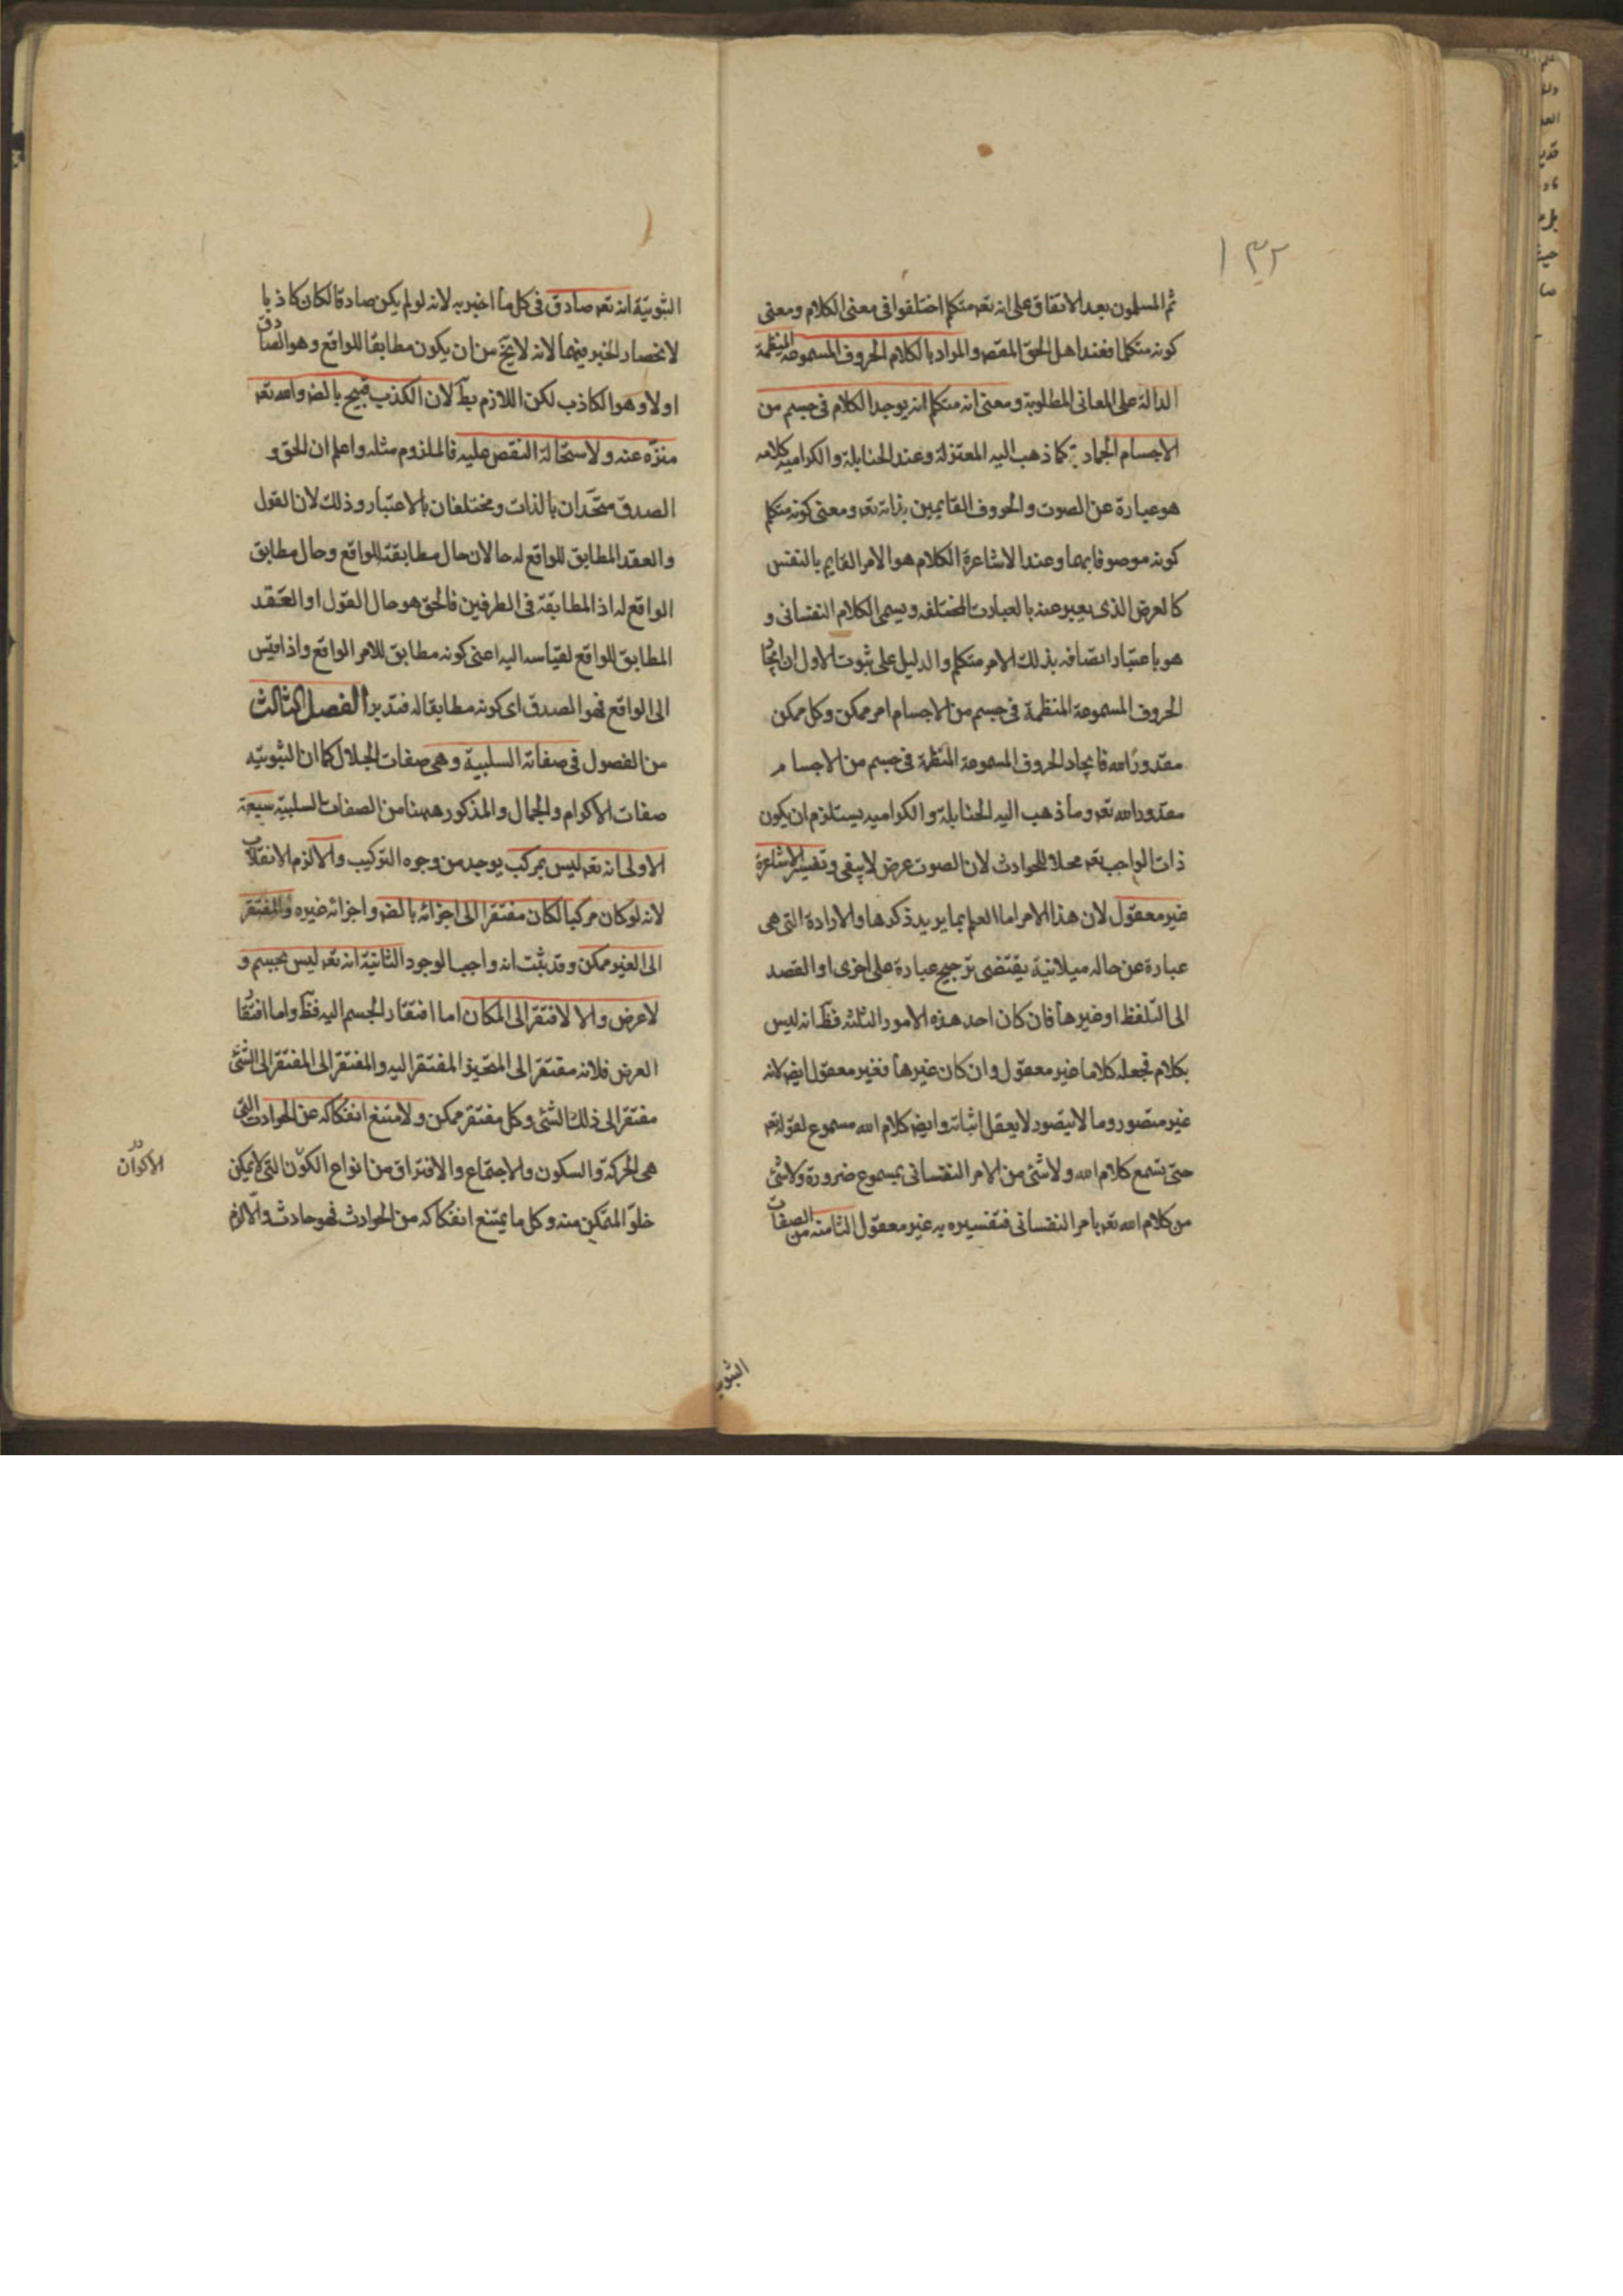 ١٣٢
ثم المسلمون بعد الاتفاق على انه تعه متكلم اختلفوا فى معنى الكلام ومعنى
كونه متكلما فعند اهل الحق المقصه والمراد بالكلام الحروف المسموعة المنتظمة
الدالة على المعانى المطلوبة ومعنى انه متكلم انه يوجد الكلام فى جسم من
الاجسام الجمادية كما ذهب اليه المعتزلة وعند الحنابلة والكراميه كلامه
هو عبارة عن الصوت والحروف القايمين بذاته تعه ومعنى كونه متكلم
كونه موصوفا بهما وعند الاشاعرة الكلام هو الامر القايم بالنفس
كالعرض الذى يعبر عنه بالعبارت المختلفه ويسمى الكلام النفسانى و
هو باعتبار اتصافه بذلك الامر متكلم والدليل على ثبوت الاول ان ايجاد
الحروف المسموعة المنتظمة فى جسم من الاجسام امر ممكن وكل ممكن
مقدور الله فايجاد الحروف المسموعة المنتظمة فى جسم من الاجسام
مقدور الله تعه وما ذهب اليه الحنابلة والكراميه يستلزم ان يكون
ذات الواجب تعه محلا للحوادث لان الصوت عرض لا يبقى وتفسير الاشاعرة
غير معقول لان هذا الامر اما العلم بما يريد ذكرها والارادة التى هى
عبارة عن حاله ميلانية يقتضى ترجيح عبارة على اخرى او القصد
الى التلفظ او غيرها فان كان احد هذه الامور الثلثه فظ انه ليس
بكلام فجعله كلاما غير معقول وان كان غيرها فغير معقول ايضه لانه
غير متصور وما لا يتصور لا يعقل اثباته وايضه كلام الله مسموع لقوله تعه
حتى تسمع كلام الله ولا شئ من الامر النفسانى بمسموع ضرورة ولا شئ
من كلام الله تعه بامر النفسانى فتفسيره به غير معقول الثامنه من الصفات
الثبوتية
الثبوتية انه تعه صادق فى كل ما اخبر به لانه لو لم يكن صادقا لكان كاذبا
لانحصار الخبر فيهما لانه لا يخ من ان يكون مطابقا للواقع وهو الصادق
اولا وهو الكاذب لكن اللازم بط لان الكذب قبيح بالضه والله تعه
منزه عنه ولاستحالة النقص عليه فالملزوم مثله واعلم ان الحق و
الصدق متحدان بالذات ومختلفان بالاعتبار وذلك لان القول
والعقد المطابق للواقع له حالان حال مطابقته للواقع وحال مطابق
الواقع له اذ المطابقة فى الطرفين فالحق هو حال القول او العقد
المطابق للواقع لقياسه اليه اعنى كونه مطابق للامر الواقع واذا قيس
الى الواقع فهو الصدق اى كونه مطابقا له فتدبر الفصل الثالث
من الفصول فى صفاته السلبية وهى صفات الجلال كما ان الثبوتيه
صفات الاكرام والجمال والمذكور ههنا من الصفات السلبيه سبعة
الاولى انه تعه ليس بمركب يوجد من وجوه التركيب والا لزم الانقلاب
لانه لو كان مركبا لكان مفتقرا الى اجزائه بالضه واجزائه غيره والمفتقر
الى الغير ممكن وقد ثبت انه واجب الوجود الثانية انه تعه ليس بجسم و
لا عرض والا لافتقر الى المكان اما افتقار الجسم اليه فظ واما افتقار
العرض فلانه مفتقر الى المتحيز المفتقر اليه والمفتقر الى المفتقر الى الشئ
مفتقر الى ذلك الشئ وكل مفتقر ممكن ولامتنع انفكاكه عن الحوادث التى
هى الحركة والسكون والاجتماع والافتراق من انواع الكون التى لا يمكن
خلو المتمكن منه وكل ما يمتنع انفكاكه من الحوادث فهو حادث والا لزم
الاكوان